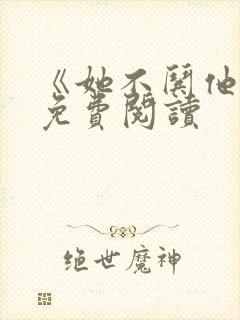 《她不鬪他
免費閱讀
绝世魔神